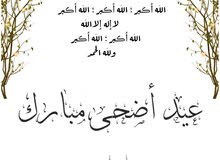 الله أكبر ؛ الله أكبر ؛ الله أكبر
لا إله إلا الله
الله أكبر ؛ الله أكبر
ولله الحمد
عيد أضحى مبارك